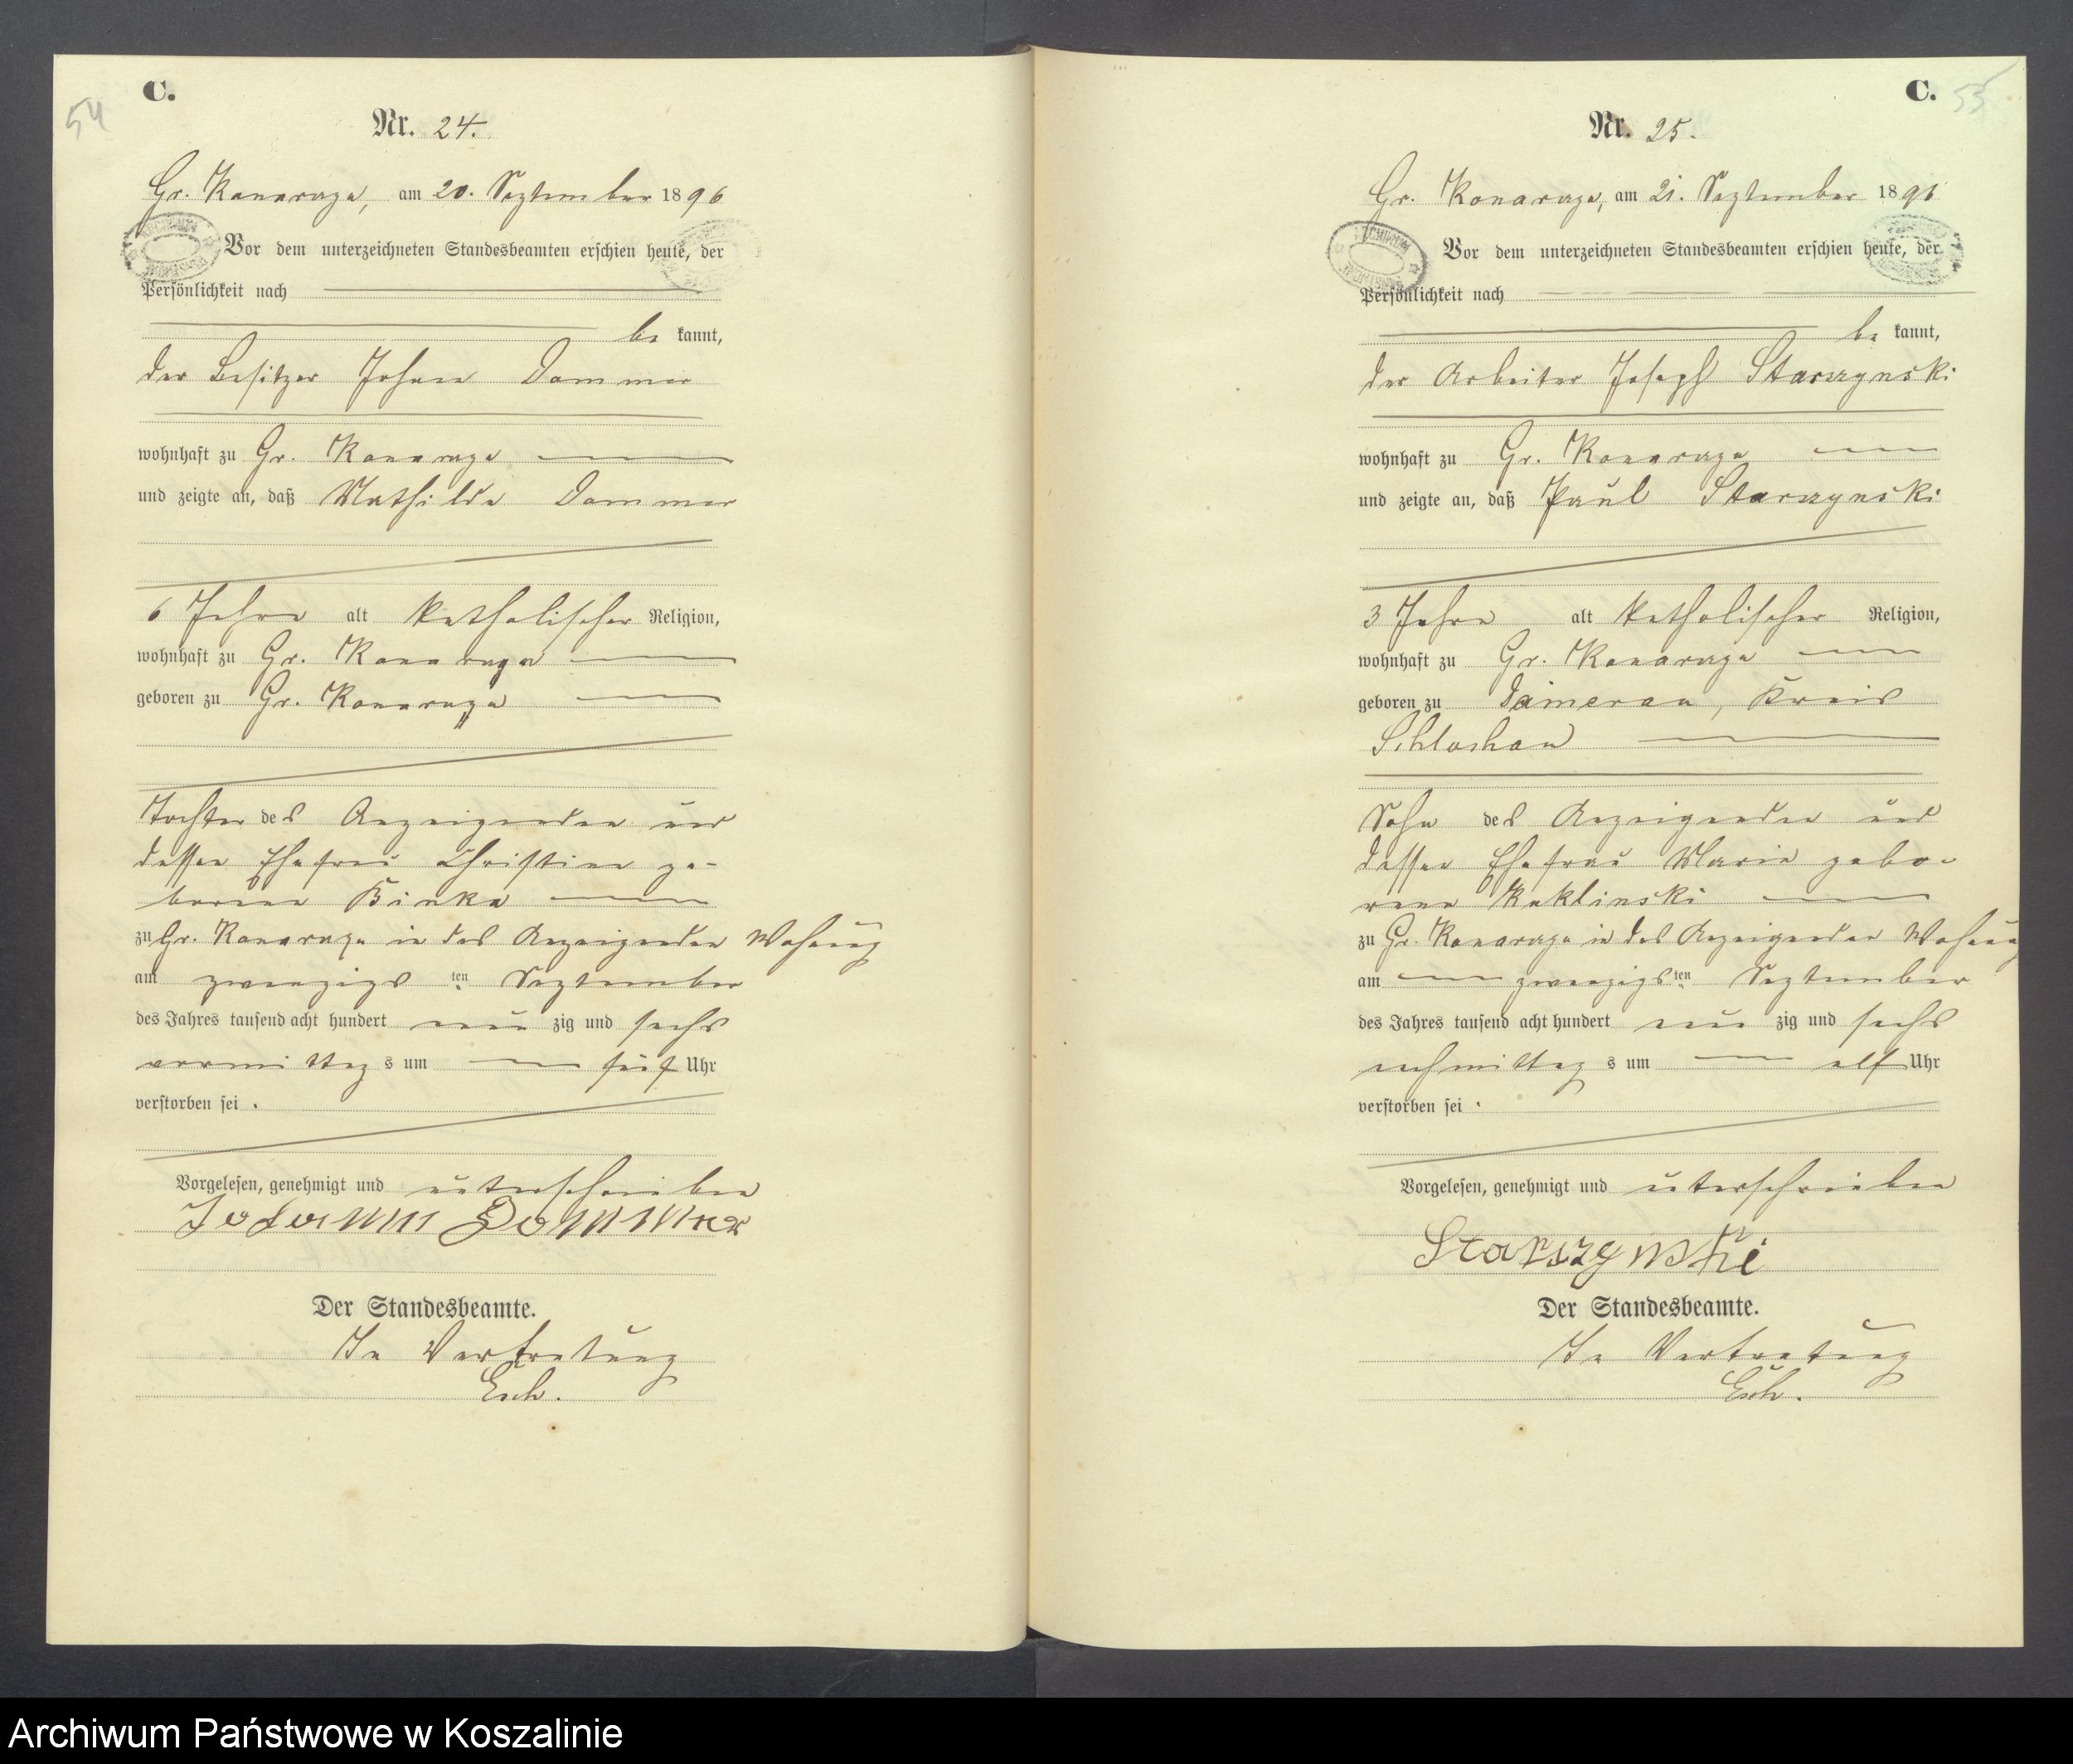 54
C.
Nr. 24.
Gr. Konarczyn, am 20. September 1896
Vor dem unterzeichneten Standesbeamten erschien heute, der
Persönlichkeit nach
be kannt,
der Besitzer Johann Dommer
wohnhaft zu Gr. Konarczyn
und zeigte an, daß Mathilde Dommer
6 Jahre alt katholischer Religion,
wohnhaft zu Gr. Konarczyn
geboren zu Gr. Konarczyn
Tochter des Anzeigenden und
dessen Ehefrau Christine ge-
borene Binka
zu Gr. Konarczyn in des Anzeigenden Wohnung
am zwanzigs ten September
des Jahres tausend acht hundert neun zig und sechs
vormittag s um fünf Uhr
verstorben sei.
Vorgelesen, genehmigt und unterschrieben
Johann Dommer
Der Standesbeamte.
In Vertretung
C.
55
Nr. 25.
Gr. Konarczyn, am 21. September 1896
Vor dem unterzeichneten Standesbeamten erschien heute, der
Persönlichkeit nach
be kannt,
der Arbeiter Joseph Starszynski
wohnhaft zu Gr. Konarczyn
und zeigte an, daß Paul Starszynski
3 Jahre alt katholischer Religion,
wohnhaft zu Gr. Konarczyn
geboren zu Damerau, Kreis
Schlochau
Sohn des Anzeigenden und
dessen Ehefrau Marie gebo-
rene Kuklinski
zu Gr. Konarczyn in des Anzeigenden Wohnung
am zwanzigs ten September
des Jahres tausend acht hundert neun zig und sechs
nachmittag s um elf Uhr
verstorben sei.
Vorgelesen, genehmigt und unterschrieben
Starszynski
Der Standesbeamte.
In Vertretung
Archiwum Państwowe w Koszalinie